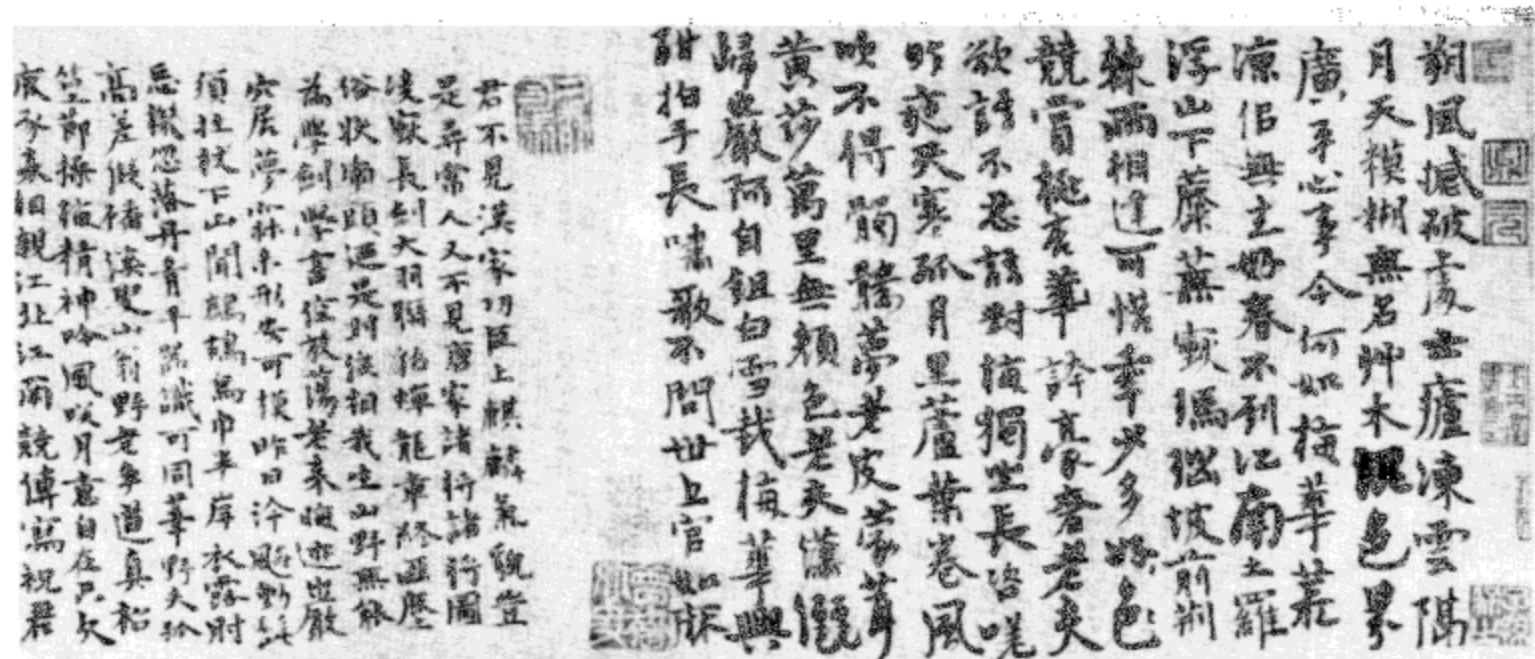 朔風撼破處士廬凍雲隔
月天模糊無名艸木混色界
廣平心事今何如梅華荒
涼佀無主好春不到江南土羅
浮山下蘼蕪煙瑪瑙坡前荊
棘雨相逢可惜年少多好色
競賞桃杏華誇豪奢老夫
欲語不忍語對梅獨坐長咨嗟
昨夜天寒孤月黑蘆葉卷風
吹不得髑髏夢老皮蒙茸
黃莎萬里無顏色老夫瀟灑
歸巖阿自鉏白雪栽梅華興
酣拍手長嘯歌不問世上官如麻
君不見漢家功臣上麒麟氣貌豈
是尋常人又不見唐家諸將諸將圖
凌煙長劍大羽聯貂蟬龍章終匪塵
俗狀虎頭迺是封侯相我生山野無能
為學劍學書空放蕩老來晦迹巖
穴居夢寐未形安可模昨日冷飈動髭
須拄杖下山聞鷓鴣烏巾半岸衣露肘
忘機忽落丹青手器識可同華野夫孤
高差儗磻溪叟山翁野老爭道真松
篁節操梅精神吟風咲月意自在只欠
鹿豕來相親江北江南競傳寫祝君